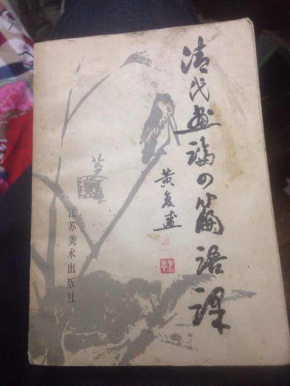 清代画论四篇语译
黄
江苏美术出版社